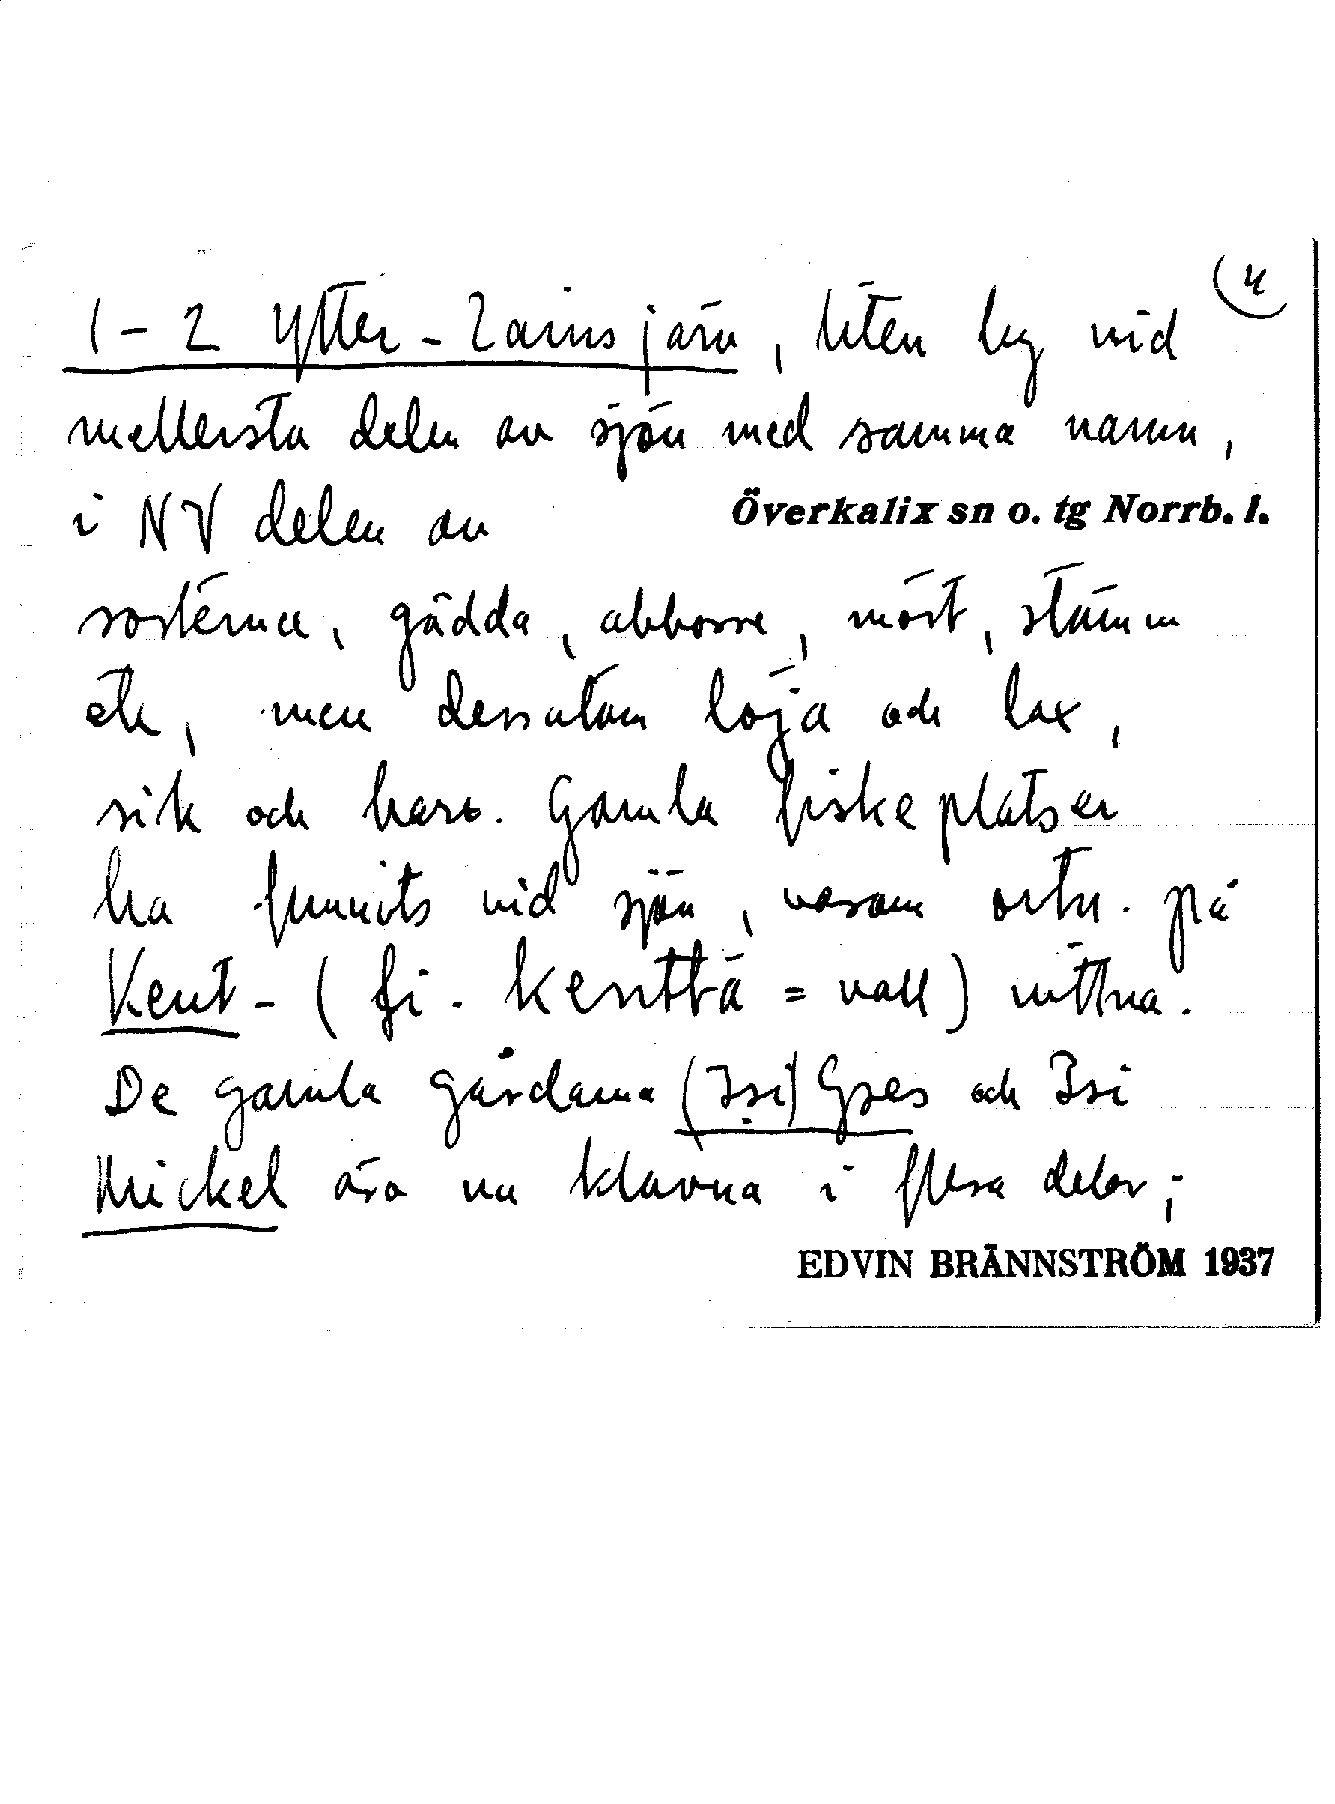 (4
1-2 Ytter-Lansjärv, liten by vid
mellersta delen av sjön med samma namn,
i NV delen av Överkalix sn o. tg Norrb. l.
sorterna, gädda, abborre, mört, stämm
etc, men dessutom löja och lax,
sik och harr. Gamla fiskeplatser
ha funnits vid sjön, varom ortn. på
Kent- (fi. kenttä = vall) vittna.
De gamla gårdarna (Isi) Gpes och Isi
Mickel äro nu kluvna i flera delar;
EDVIN BRÄNNSTRÖM 1937